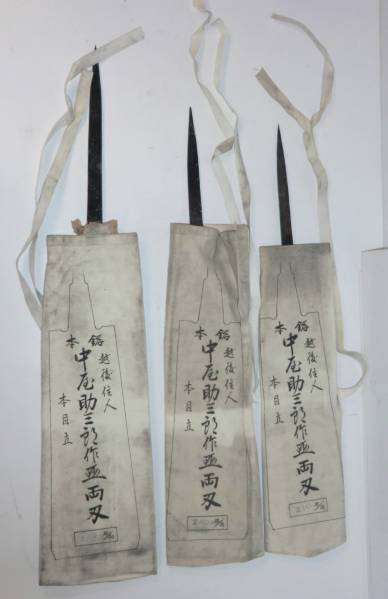 本
越後住人
中屋助三郎作両刃
本目立
本
越後住人
中屋助三郎作両刃
本目立
本
越後住人
中屋助三郎作両刃
本目立